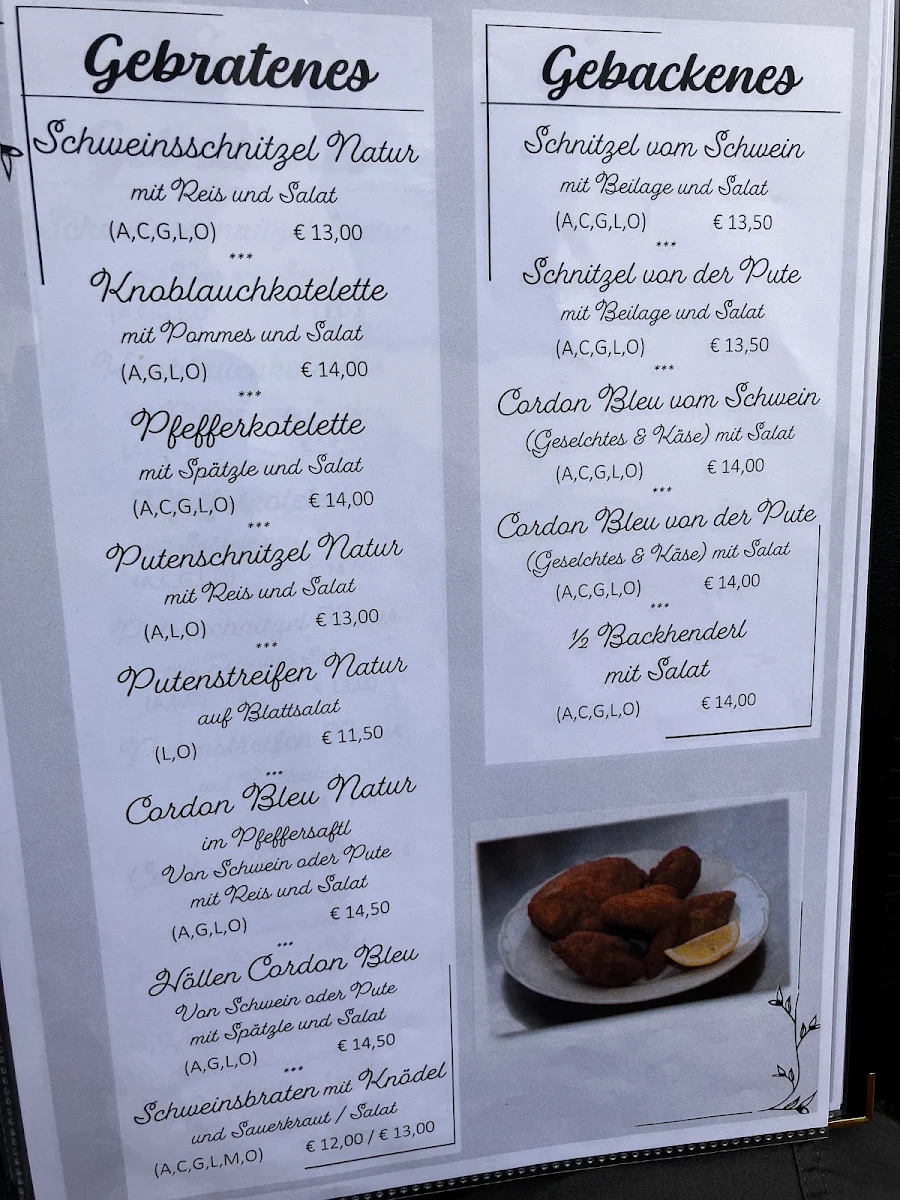 Gebratenes
Schweinsschnitzel Natur
mit Reis und Salat
(A,C,G,L,O) € 13,00
***
Knoblauchkotelette
mit Pommes und Salat
(A,G,L,O) € 14,00
***
Pfefferkotelette
mit Spätzle und Salat
(A,C,G,L,O) € 14,00
***
Putenschnitzel Natur
mit Reis und Salat
(A,L,O) € 13,00
***
Putenstreifen Natur
auf Blattsalat
(L,O) € 11,50
***
Cordon Bleu Natur
im Pfeffersaftl
Von Schwein oder Pute
mit Reis und Salat
(A,G,L,O) € 14,50
***
Höllen Cordon Bleu
Von Schwein oder Pute
mit Spätzle und Salat
(A,G,L,O) € 14,50
***
Schweinsbraten mit Knödel
und Sauerkraut / Salat
(A,C,G,L,M,O) € 12,00 / € 13,00
Gebackenes
Schnitzel vom Schwein
mit Beilage und Salat
(A,C,G,L,O) € 13,50
***
Schnitzel von der Pute
mit Beilage und Salat
(A,C,G,L,O) € 13,50
***
Cordon Bleu vom Schwein
(Geselchtes & Käse) mit Salat
(A,C,G,L,O) € 14,00
***
Cordon Bleu von der Pute
(Geselchtes & Käse) mit Salat
(A,C,G,L,O) € 14,00
***
½ Backhenderl
mit Salat
(A,C,G,L,O) € 14,00